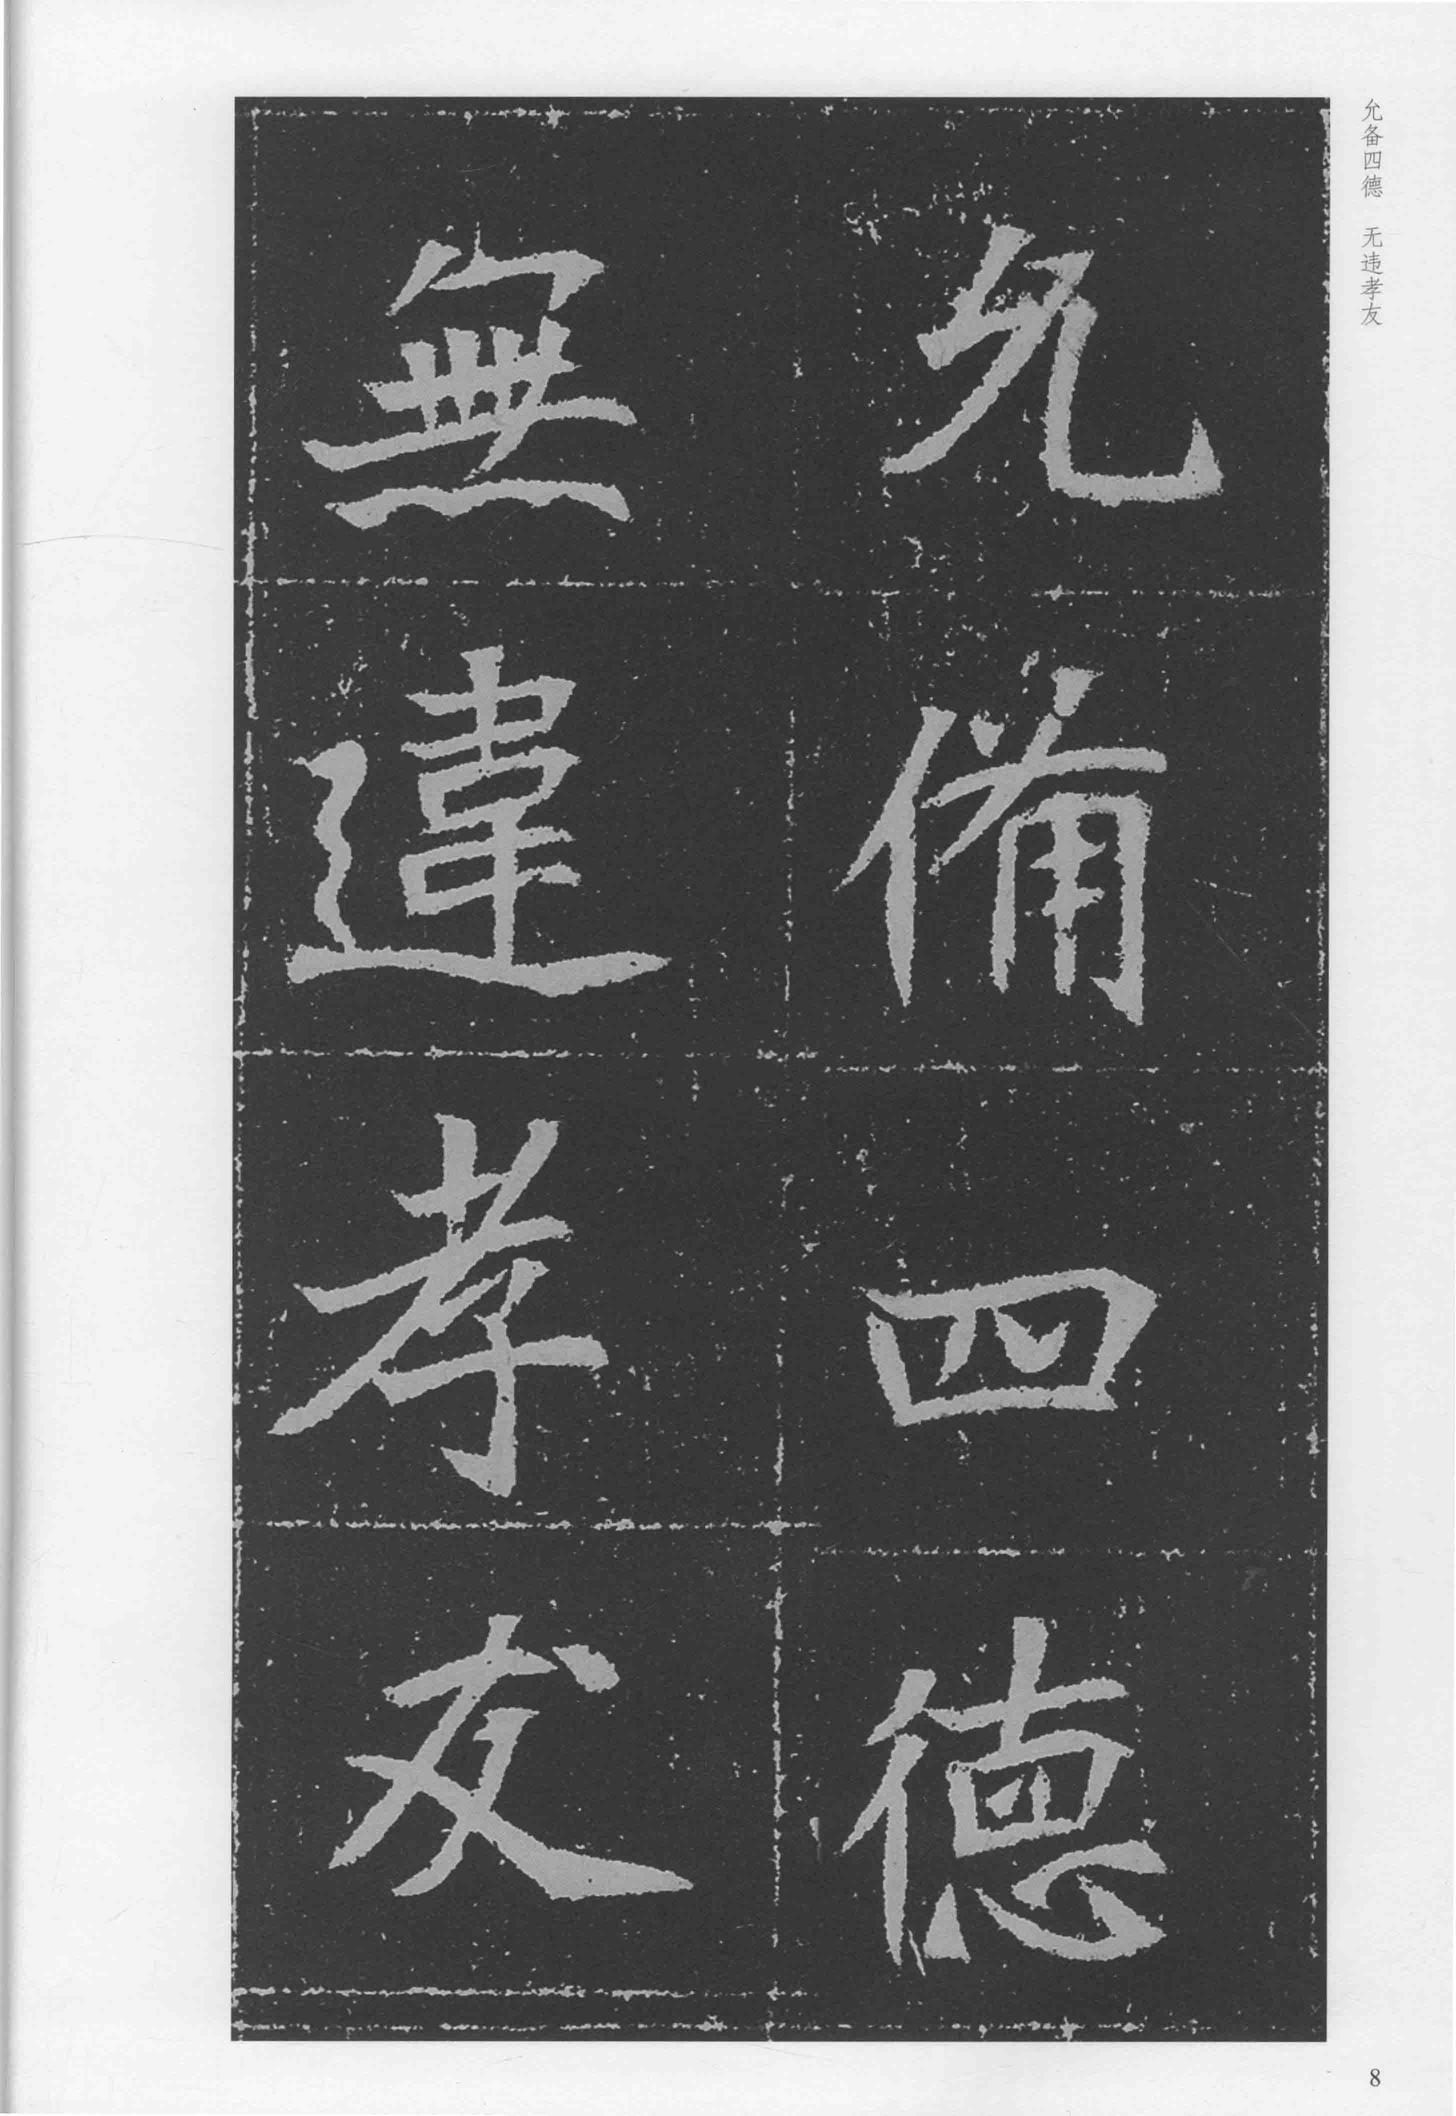 允备四德　无违孝友
允備四德
無違孝友
8